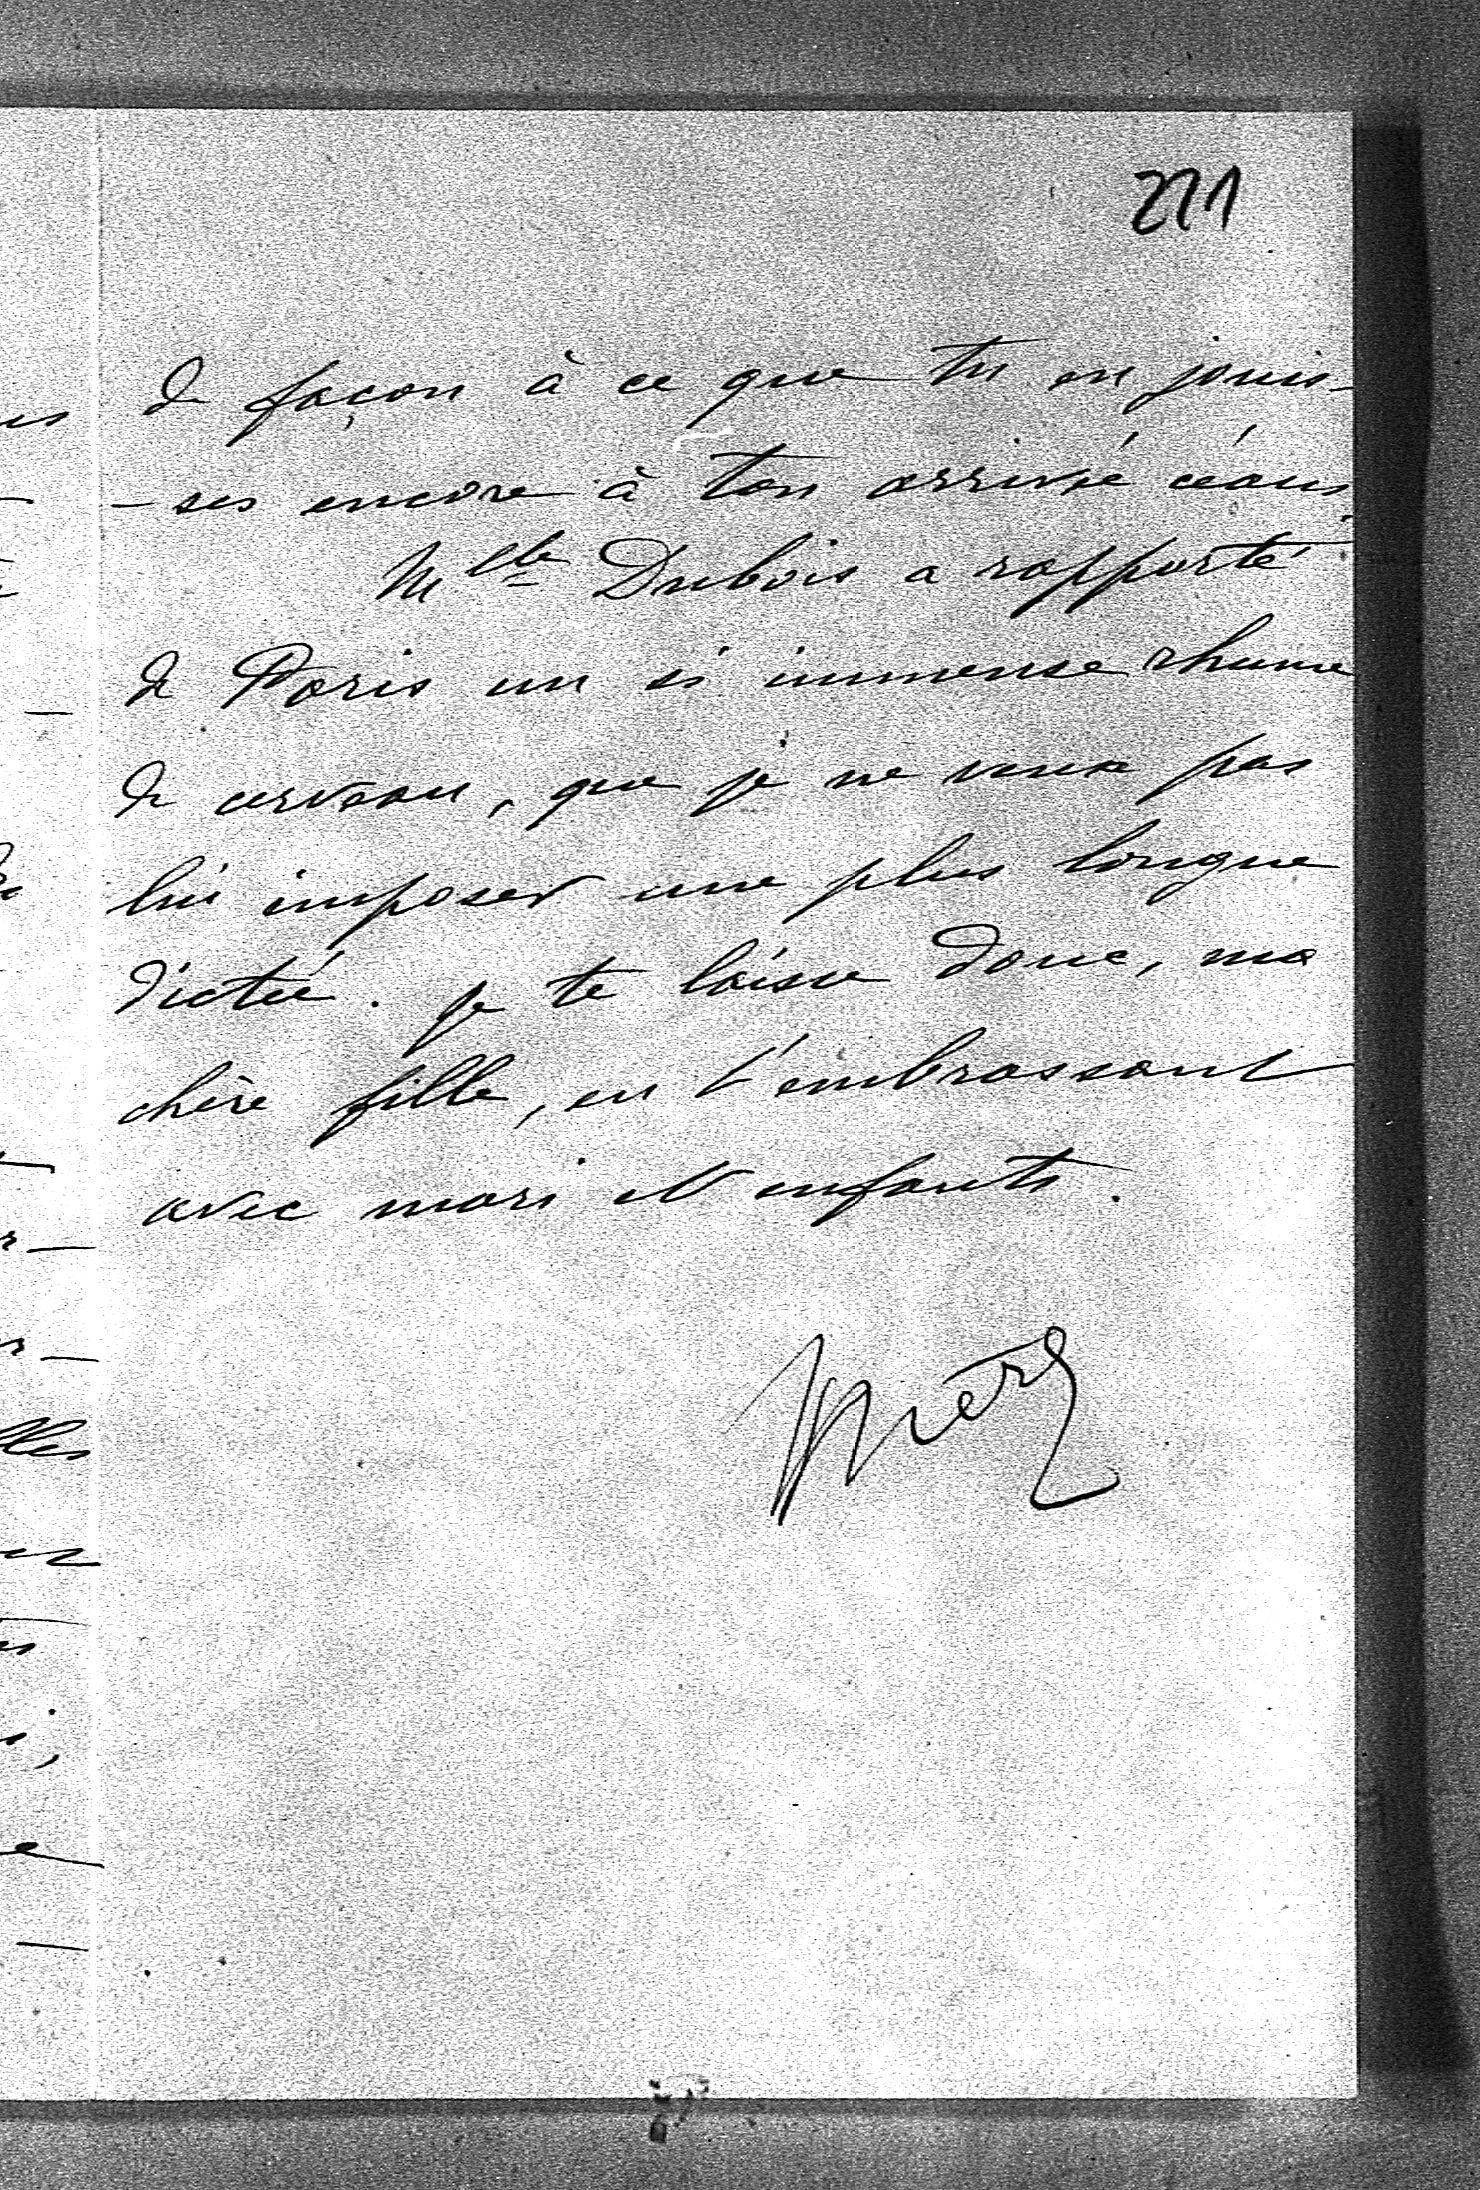 271
de façon à ce que tu en jouis-
-ses encore à ton arrivée céans.
Mlle Dubois a rapporté
de Paris un si immense rhume
de cerveau, que je ne veux pas
lui imposer une plus longue
dictée. Je te laisse donc, ma
chère fille, en t'embrassant
avec mari et enfants.
Mère